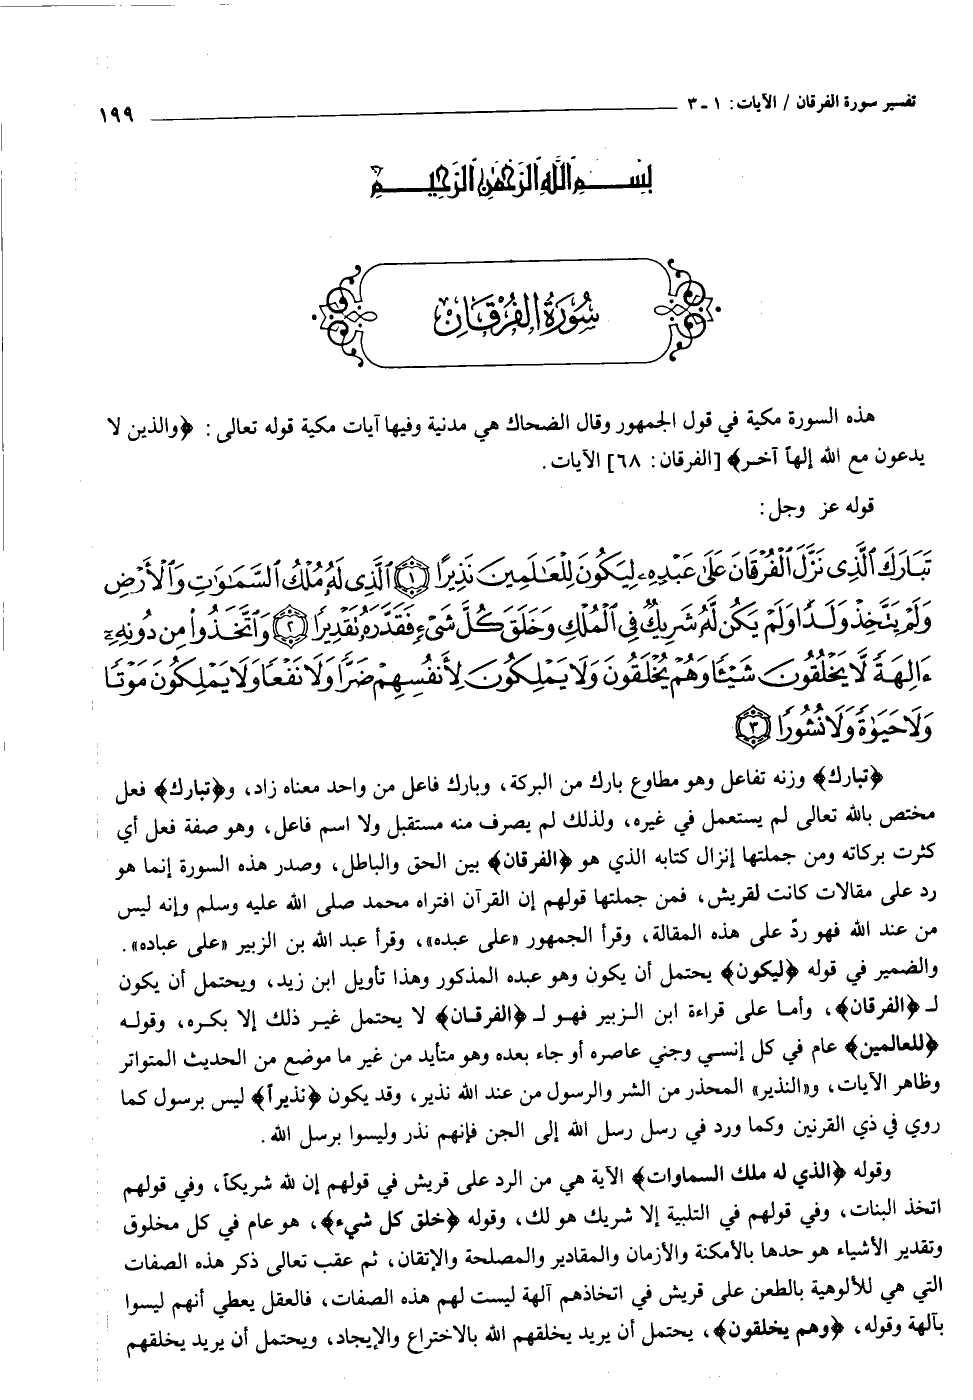 تفسير سورة الفرقان / الآيات: ١ - ٣
١٩٩
بسم الله الرحمن الرحيم
سورة الفرقان
هذه السورة مكية في قول الجمهور وقال الضحاك هي مدنية وفيها آيات مكية قوله تعالى: ﴿والذين لا
يدعون مع الله إلهاً آخر﴾ [الفرقان: ٦٨] الآيات.
قوله عز وجل:
تَبَارَكَ ٱلَّذِى نَزَّلَ ٱلْفُرْقَانَ عَلَىٰ عَبْدِهِۦ لِيَكُونَ لِلْعَـٰلَمِينَ نَذِيرًا ﴿١﴾ ٱلَّذِى لَهُۥ مُلْكُ ٱلسَّمَـٰوَٰتِ وَٱلْأَرْضِ
وَلَمْ يَتَّخِذْ وَلَدًا وَلَمْ يَكُن لَّهُۥ شَرِيكٌ فِى ٱلْمُلْكِ وَخَلَقَ كُلَّ شَىْءٍ فَقَدَّرَهُۥ نَقْدِيرًا ﴿٢﴾ وَٱتَّخَذُوا۟ مِن دُونِهِۦٓ
ءَالِهَةً لَّا يَخْلُقُونَ شَيْـًٔا وَهُمْ يُخْلَقُونَ وَلَا يَمْلِكُونَ لِأَنفُسِهِمْ ضَرًّا وَلَا نَفْعًا وَلَا يَمْلِكُونَ مَوْتًا
وَلَا حَيَوٰةً وَلَا نُشُورًا ﴿٣﴾
﴿تبارك﴾ وزنه تفاعل وهو مطاوع بارك من البركة، وبارك فاعل من واحد معناه زاد، و﴿تبارك﴾ فعل
مختص بالله تعالى لم يستعمل في غيره، ولذلك لم يصرف منه مستقبل ولا اسم فاعل، وهو صفة فعل أي
كثرت بركاته ومن جملتها إنزال كتابه الذي هو ﴿الفرقان﴾ بين الحق والباطل، وصدر هذه السورة إنما هو
رد على مقالات كانت لقريش، فمن جملتها قولهم إن القرآن افتراه محمد صلى الله عليه وسلم وإنه ليس
من عند الله فهو ردّ على هذه المقالة، وقرأ الجمهور «على عبده»، وقرأ عبد الله بن الزبير «على عباده».
والضمير في قوله ﴿ليكون﴾ يحتمل أن يكون وهو عبده المذكور وهذا تأويل ابن زيد، ويحتمل أن يكون
لـ ﴿الفرقان﴾، وأما على قراءة ابن الزبير فهو لـ ﴿الفرقان﴾ لا يحتمل غير ذلك إلا بكره، وقوله
﴿للعالمين﴾ عام في كل إنسي وجني عاصره أو جاء بعده وهو متأيد من غير ما موضع من الحديث المتواتر
وظاهر الآيات، و«النذير» المحذر من الشر والرسول من عند الله نذير، وقد يكون ﴿نذيراً﴾ ليس برسول كما
روي في ذي القرنين وكما ورد في رسل رسل الله إلى الجن فإنهم نذر وليسوا برسل الله.
وقوله ﴿الذي له ملك السماوات﴾ الآية هي من الرد على قريش في قولهم إن لله شريكاً، وفي قولهم
اتخذ البنات، وفي قولهم في التلبية إلا شريك هو لك، وقوله ﴿خلق كل شيء﴾، هو عام في كل مخلوق
وتقدير الأشياء هو حدها بالأمكنة والأزمان والمقادير والمصلحة والإتقان، ثم عقب تعالى ذكر هذه الصفات
التي هي للألوهية بالطعن على قريش في اتخاذهم آلهة ليست لهم هذه الصفات، فالعقل يعطي أنهم ليسوا
بآلهة وقوله، ﴿وهم يخلقون﴾، يحتمل أن يريد يخلقهم الله بالاختراع والإيجاد، ويحتمل أن يريد يخلقهم